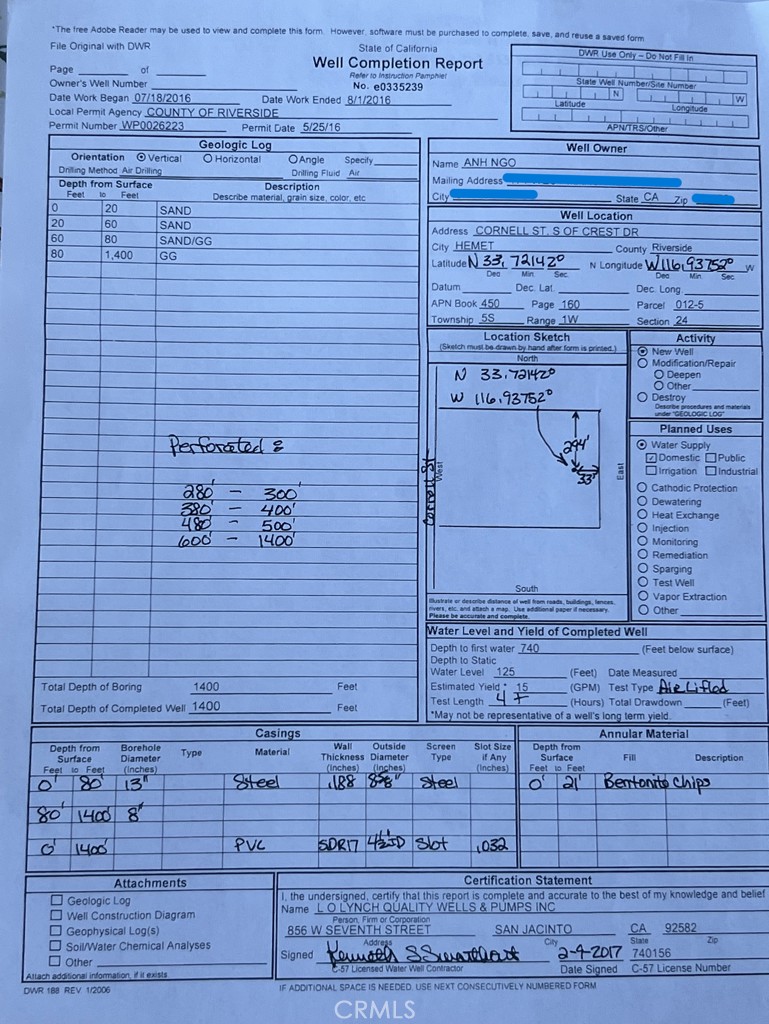 *The free Adobe Reader may be used to view and complete this form. However, software must be purchased to complete, save, and reuse a saved form
File Original with DWR
State of California
Well Completion Report
Refer to Instruction Pamphlet
No. e0335239
Page of
Owner's Well Number
Date Work Began 07/18/2016 Date Work Ended 8/1/2016
Local Permit Agency COUNTY OF RIVERSIDE
Permit Number WP0026223 Permit Date 5/25/16
DWR Use Only – Do Not Fill In
State Well Number/Site Number
N W
Latitude Longitude
APN/TRS/Other
Geologic Log
Orientation Vertical Horizontal Angle Specify
Drilling Method Air Drilling Drilling Fluid Air
Depth from Surface Description
Feet to Feet Describe material, grain size, color, etc
0 20 SAND
20 60 SAND
60 80 SAND/GG
80 1,400 GG
Perforated :
280' – 300'
380' – 400'
480' – 500'
600' – 1400'
Total Depth of Boring 1400 Feet
Total Depth of Completed Well 1400 Feet
Well Owner
Name ANH NGO
Mailing Address
City State CA Zip
Well Location
Address CORNELL ST, S OF CREST DR
City HEMET County Riverside
Latitude N 33.72142° N Longitude W116.93752° W
Deg Min. Sec. Deg Min. Sec.
Datum Dec. Lat. Dec. Long.
APN Book 450 Page 160 Parcel 012-5
Township 5S Range 1W Section 24
Location Sketch
(Sketch must be drawn by hand after form is printed.)
North
N 33.72142°
W 116.93752°
294'
33'
Cornell St.
West
East
South
Illustrate or describe distance of well from roads, buildings, fences,
rivers, etc. and attach a map. Use additional paper if necessary.
Please be accurate and complete.
Activity
New Well
Modification/Repair
Deepen
Other
Destroy
Describe procedures and materials
under "GEOLOGIC LOG"
Planned Uses
Water Supply
Domestic Public
Irrigation Industrial
Cathodic Protection
Dewatering
Heat Exchange
Injection
Monitoring
Remediation
Sparging
Test Well
Vapor Extraction
Other
Water Level and Yield of Completed Well
Depth to first water 740 (Feet below surface)
Depth to Static
Water Level 125 (Feet) Date Measured
Estimated Yield * 15 (GPM) Test Type Air Lifted
Test Length 4 + (Hours) Total Drawdown (Feet)
*May not be representative of a well's long term yield.
Casings
Depth from Surface Feet to Feet Borehole Diameter (Inches) Type Material Wall Thickness (Inches) Outside Diameter (Inches) Screen Type Slot Size if Any (Inches)
0' 80' 13" Steel .188 8⅝" Steel
80' 1400' 8"
0' 1400' PVC SDR17 4½ID Slot .032
Annular Material
Depth from Surface Feet to Feet Fill Description
0' 21' Bentonite Chips
Attachments
Geologic Log
Well Construction Diagram
Geophysical Log(s)
Soil/Water Chemical Analyses
Other
Attach additional information, if it exists.
Certification Statement
I, the undersigned, certify that this report is complete and accurate to the best of my knowledge and belief
Name L O LYNCH QUALITY WELLS & PUMPS INC
Person, Firm or Corporation
856 W SEVENTH STREET SAN JACINTO CA 92582
Address City State Zip
Signed 2-9-2017 740156
C-57 Licensed Water Well Contractor Date Signed C-57 License Number
DWR 188 REV. 1/2006
IF ADDITIONAL SPACE IS NEEDED, USE NEXT CONSECUTIVELY NUMBERED FORM
CRMLS